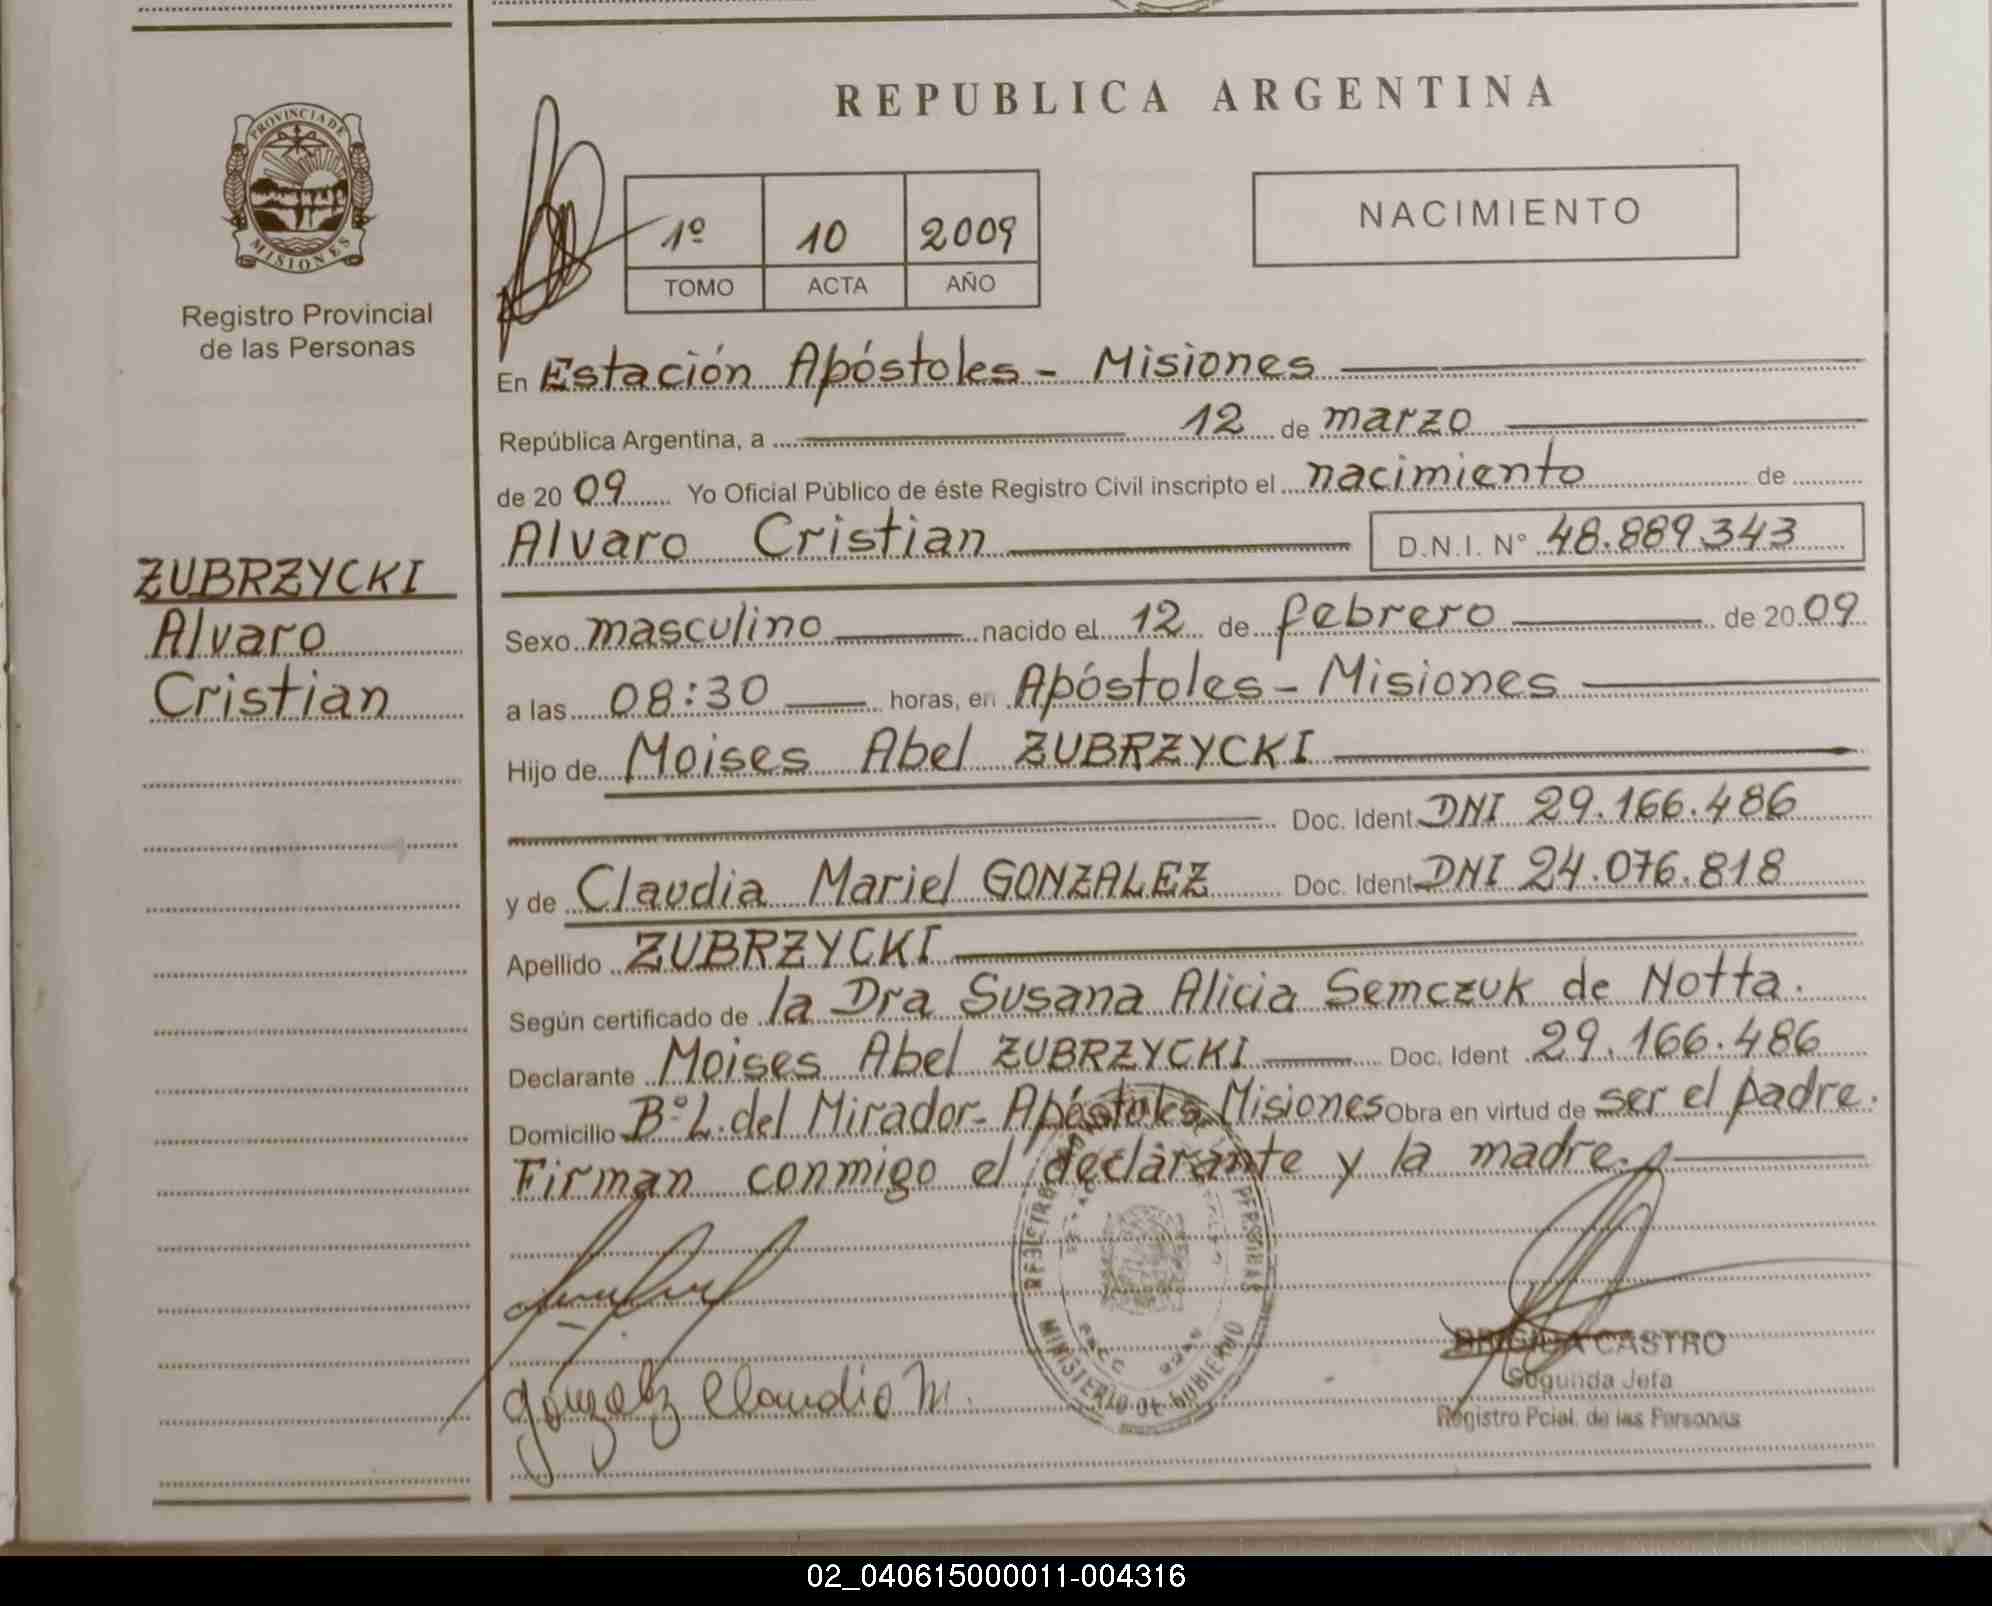 REPUBLICA ARGENTINA
PROVINCIA DE
MISIONES
Registro Provincial
de las Personas
1º 10 2009
TOMO ACTA AÑO
NACIMIENTO
En Estación Apóstoles - Misiones
República Argentina, a 12 de marzo
de 20 09 Yo Oficial Público de éste Registro Civil inscripto el nacimiento de
Alvaro Cristian D.N.I. N° 48.889.343
ZUBRZYCKI
Alvaro
Cristian
Sexo masculino nacido el 12 de febrero de 20 09
a las 08:30 horas, en Apóstoles - Misiones
Hijo de Moises Abel ZUBRZYCKI
Doc. Ident. DNI 29.166.486
y de Claudia Mariel GONZALEZ Doc. Ident. DNI 24.076.818
Apellido ZUBRZYCKI
Según certificado de la Dra Susana Alicia Semczuk de Notta.
Declarante Moises Abel ZUBRZYCKI Doc. Ident 29.166.486
Domicilio Bº L. del Mirador - Apóstoles, Misiones Obra en virtud de ser el padre.
Firman conmigo el declarante y la madre.
REGISTRO PERSONAS
MINISTERIO DE GOBIERNO
Gonzalez Claudia M.
BRIGIDA CASTRO
Segunda Jefa
Registro Pcial. de las Personas
02_040615000011-004316